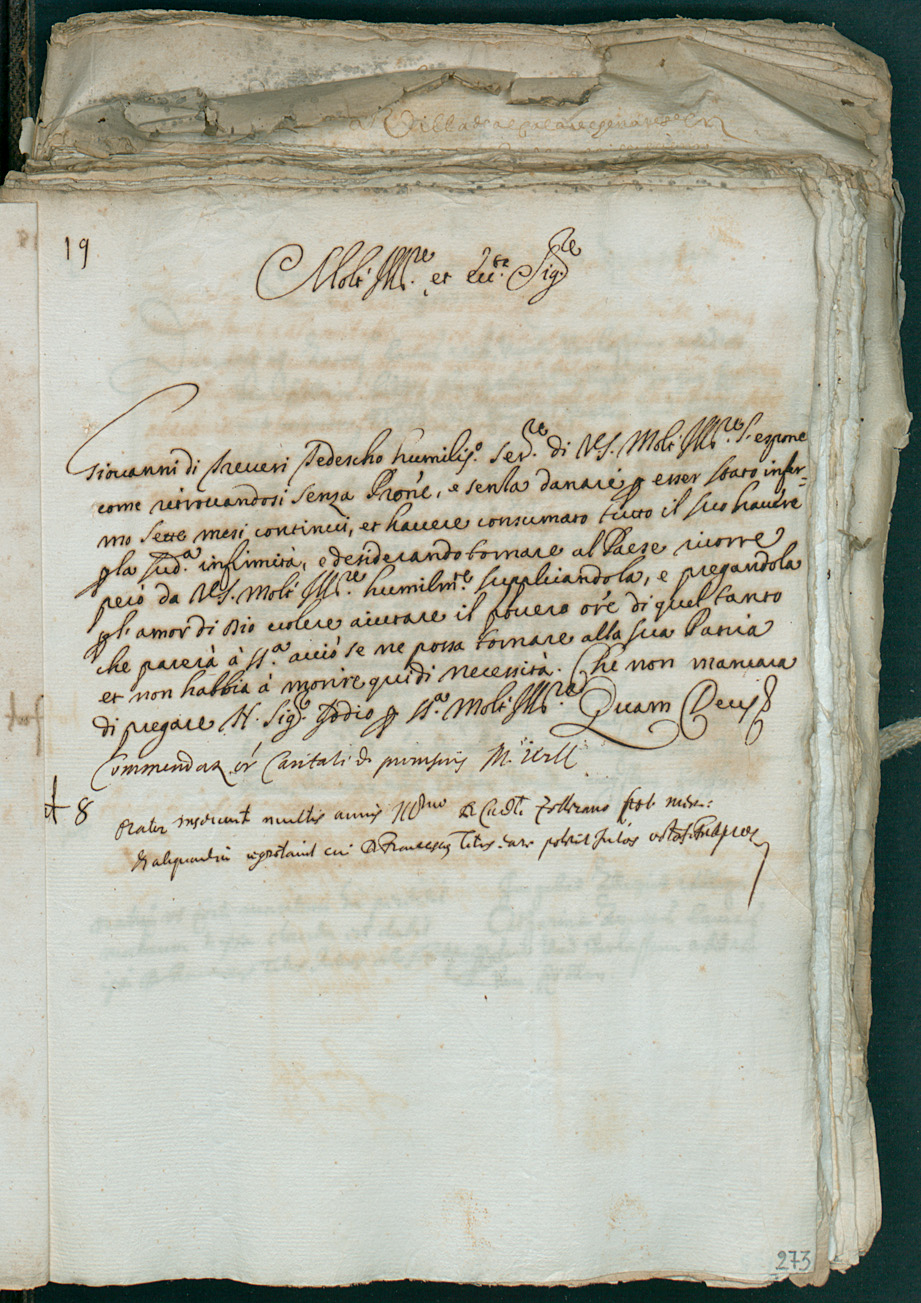 19
Molt' Ill.re et Ecc.te Sig.re
Giovanni di Treveri Tedescho humilis.o Ser.re di V.S. Molt' Ill.re l'espone
come ritrovandosi senza Pro'ne, e senza danari p esser stato infer=
mo sette mesi continui, et havere consumato tutto il suo havere
p la sud.a infirmità, e desiderando tornare al Paese ricorre
però da V.S. Molt' Ill.re humilm.te supplicandola, e pregandola
p l'amor di Dio volere aiutare il povero or'e di quel tanto
che parerà à ss.a acciò se ne possa tornare alla sua Patria
et non habbia à morire qui di necessità. Che non mancara
di pregare N. Sig.re Iddio p ss.a Molt' Ill.re Quam Deus
Commendat or Caritati di
8
Orator inserivit multis annis Ill.mo Zollerano
aliquandiu egrotavit cui D. Franciscus Titus dare poterit Iulios
273